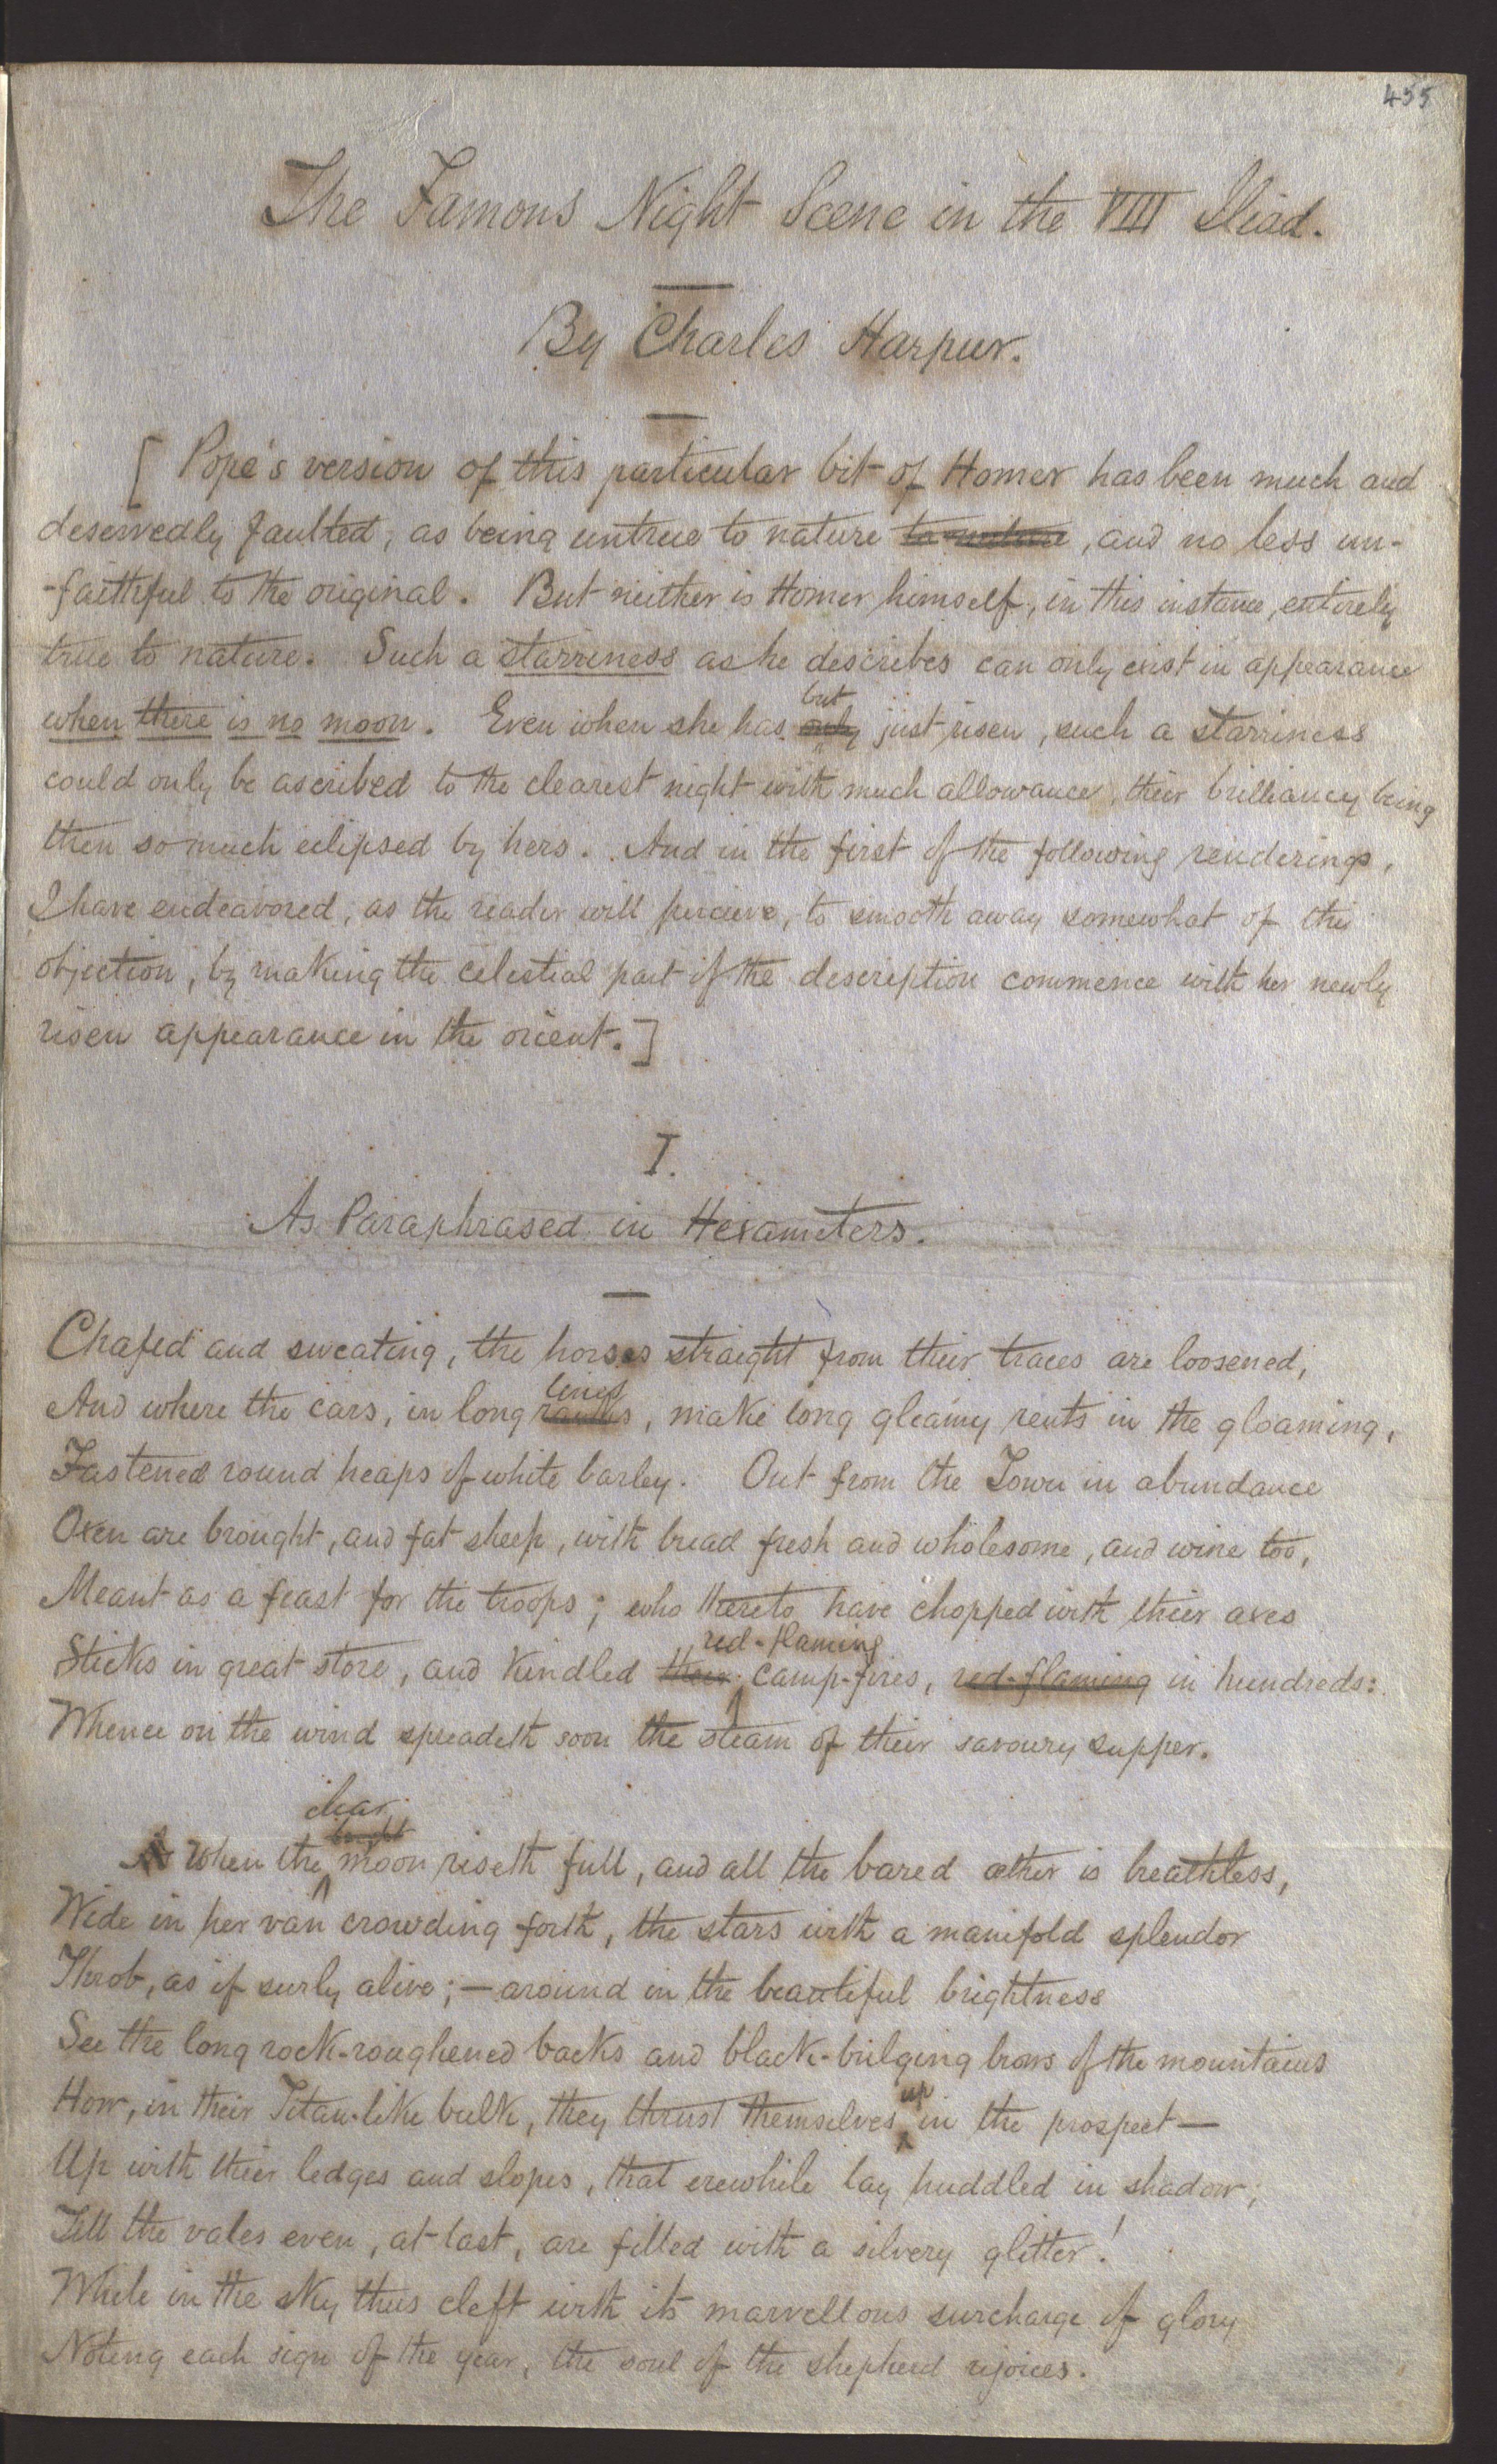 455
The Famous Night Scene in the VIII Iliad.
By Charles Harpur.
[Pope's version of this particular bit of Homer has been much and
deservedly faulted, as being untrue to nature to nature, and no less un-
-faithful to the original. But neither is Homer himself, in this instance, entirely
true to nature. Such a starriness as he describes can only exist in appearance
when there is no moon. Even when she has only but just risen, such a starriness
could only be ascribed to the clearest night with much allowance, their brilliancy being
then so much eclipsed by hers. And in the first of the following renderings,
I have endeavored, as the reader will perceive, to smooth away somewhat of this
objection, by making the celestial part of the description commence with her newly
risen appearance in the orient.]
I.
As Paraphrased in Hexameters.
Chafed and sweating, the horses straight from their traces are loosened,
And where the cars, in long ranks lines, make long gleamy rents in the gloaming,
Fastened round heaps of white barley. Out from the Town in abundance
Oxen are brought, and fat sheep, with bread fresh and wholesome, and wine too,
Meant as a feast for the troops; who thereto have chopped with their axes
Sticks in great store, and kindled their red-flaming camp-fires, red-flaming in hundreds:
Whence on the wind spreadeth soon the steam of their savoury supper.
As when the bright clear moon riseth full, and all the bared æther is breathless,
Wide in her van crowding forth, the stars with a manifold splendor
Throb, as if surly alive;—around in the beautiful brightness
See the long rock-roughened backs and black-bulging brows of the mountains
How, in their Titan-like bulk, they thrust themselves up in the prospect—
Up with their ledges and slopes, that erewhile lay huddled in shadow;
Till the vales even, at last, are filled with a silvery glitter!
While in the sky thus cleft with its marvellous surcharge of glory
Noting each sign of the year, the soul of the shepherd rejoices.